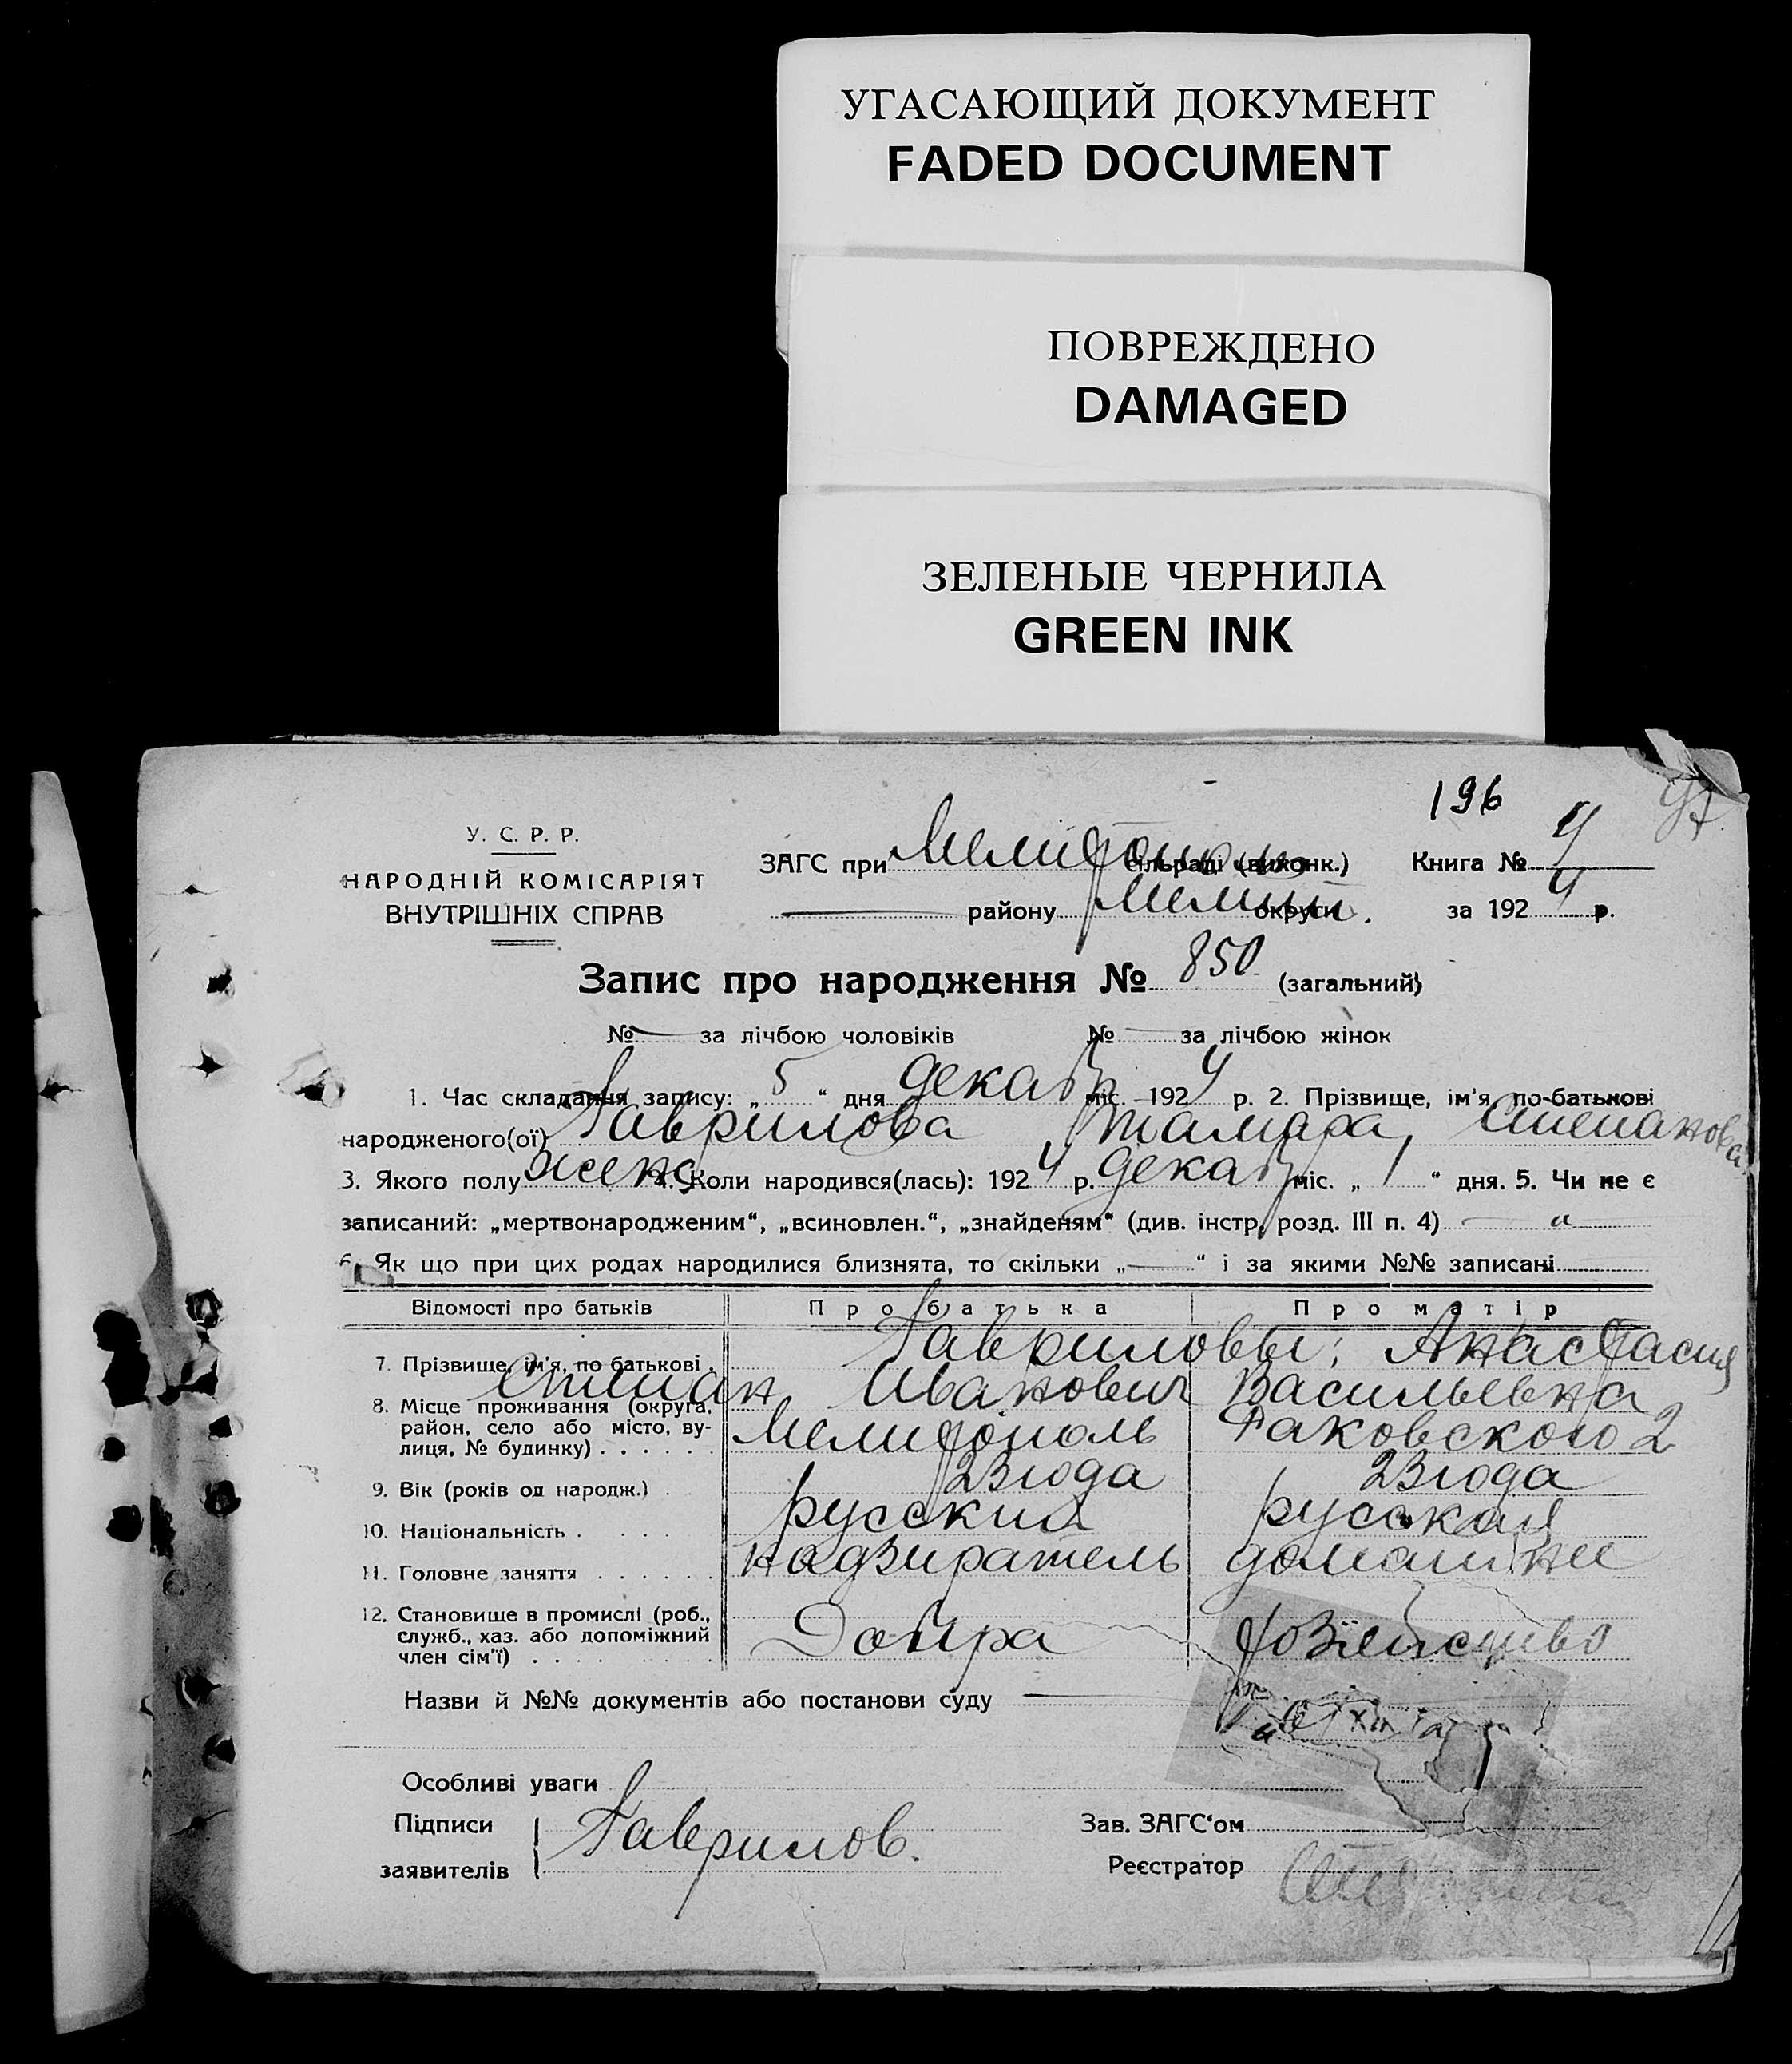 УГАСАЮЩИЙ ДОКУМЕНТ
FADED DOCUMENT
ПОВРЕЖДЕНО
DAMAGED
ЗЕЛЕНЫЕ ЧЕРНИЛА
GREEN INK
196
У. С. Р. Р.
НАРОДНІЙ КОМІСАРІЯТ
ВНУТРІШНІХ СПРАВ
ЗАГС при сільраді (виконк.) Книга № 4
району Мелит. округи за 1924 р.
Запис про народження № 850 (загальний)
№ — за лічбою чоловіків № — за лічбою жінок
1. Час складання запису: „ 5 “ дня декабр міс. 1924 р. 2. Прізвище, ім'я, по-батькові
народженого(ої) Гаврилова Тамара Степановна
3. Якого полу женс 4. Коли народився(лась): 1924 р. декабр міс. „ 1 “ дня. 5. Чи не є
записаний: „мертвонародженим“, „всиновлен.“, „знайденям“ (див. інстр. розд. III п. 4) — „ —
6. Як що при цих родах народилися близнята, то скільки „—“ і за якими №№ записані
Відомості про батьків Про батька Про матір
7. Прізвище, ім'я, по батькові Гавриловы: Анастасия
Степан Иванович Васильевна
8. Місце проживання (округа,
район, село або місто, ву-
лиця, № будинку) Мелитополь Раковского 2
9. Вік (років од народж.) 23 года 23 года
10. Національність русский русская
11. Головне заняття надзиратель домашнее
12. Становище в промислі (роб.,
служб., хаз. або допоміжний
член сім'ї) Допра хозяйство
Назви й №№ документів або постанови суду —
Особливі уваги
Підписи
заявителів Гаврилов.
Зав. ЗАГС'ом
Реєстратор